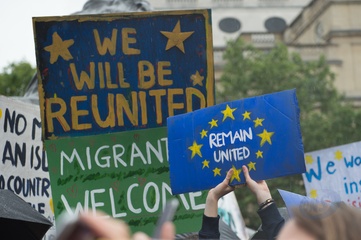 WE
WILL BE
REUNITED
MIGRANT
WELCOME
REMAIN
UNITED
NO M
AN IS
COUNTR
We